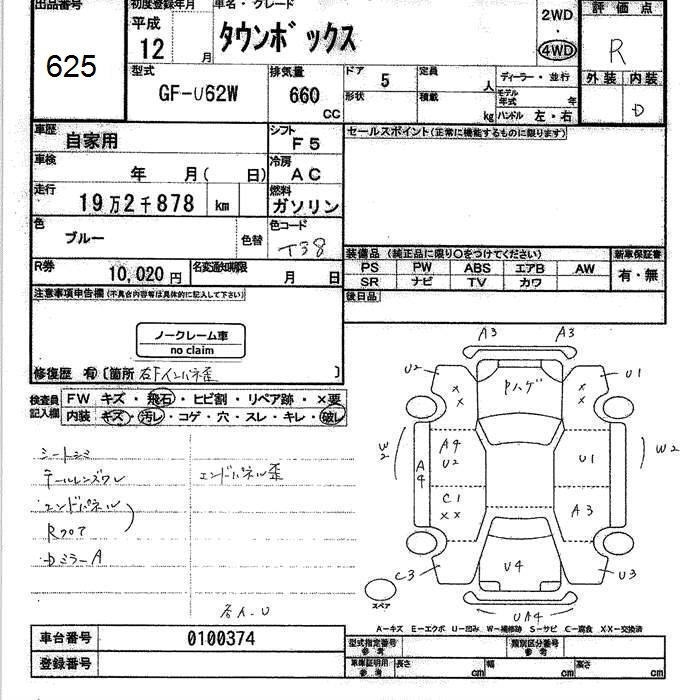 出品番号 初度登録年月 車名・グレード 評価点
625 平成 12 月 タウンボックス 2WD ・ 4WD R
型式 GF-U62W 排気量 660 CC ドア 5 定員 人 ディーラー・並行 外装 内装
形状 積載 kg モデル年式 年 ハンドル 左・右 D
車歴 自家用 シフト F5 セールスポイント(正常に機能するものに限ります)
車検 年 月( 日) 冷房 AC
走行 19万2千878 km 燃料 ガソリン
色 ブルー 色替 色コード T38
装備品 (純正品に限り○をつけてください) 新車保証書
PS PW ABS エアB AW 有・無
SR ナビ TV カワ
R券 10,020円 名変通知期限 月 日 後日品
注意事項申告欄(不具合内容等は具体的に記入して下さい)
ノークレーム車
no claim
修復歴 有 〔箇所 右Fインパネ歪 〕
検査員記入欄 FW キズ・飛石・ヒビ割・リペア跡・×要
内装 キズ・汚レ・コゲ・穴・スレ・キレ・破レ
シートシミ
テールレンズワレ エンドパネル歪
エンドパネル
Rフロア
DミラーA
A3 A3
U2 Pハゲ U1
X X X X
W2 A4 A4 U2 U1 W2
C1 XX A3
C3 U4 U3
スペア UA4
A-キズ E-エクボ U-凹み W-補修跡 S-サビ C-腐食 XX-交換済
車台番号 0100374 型式指定番号 参考 類別区分番号 参考
登録番号 車庫証明用 参考 長さ cm 幅 cm 高さ cm